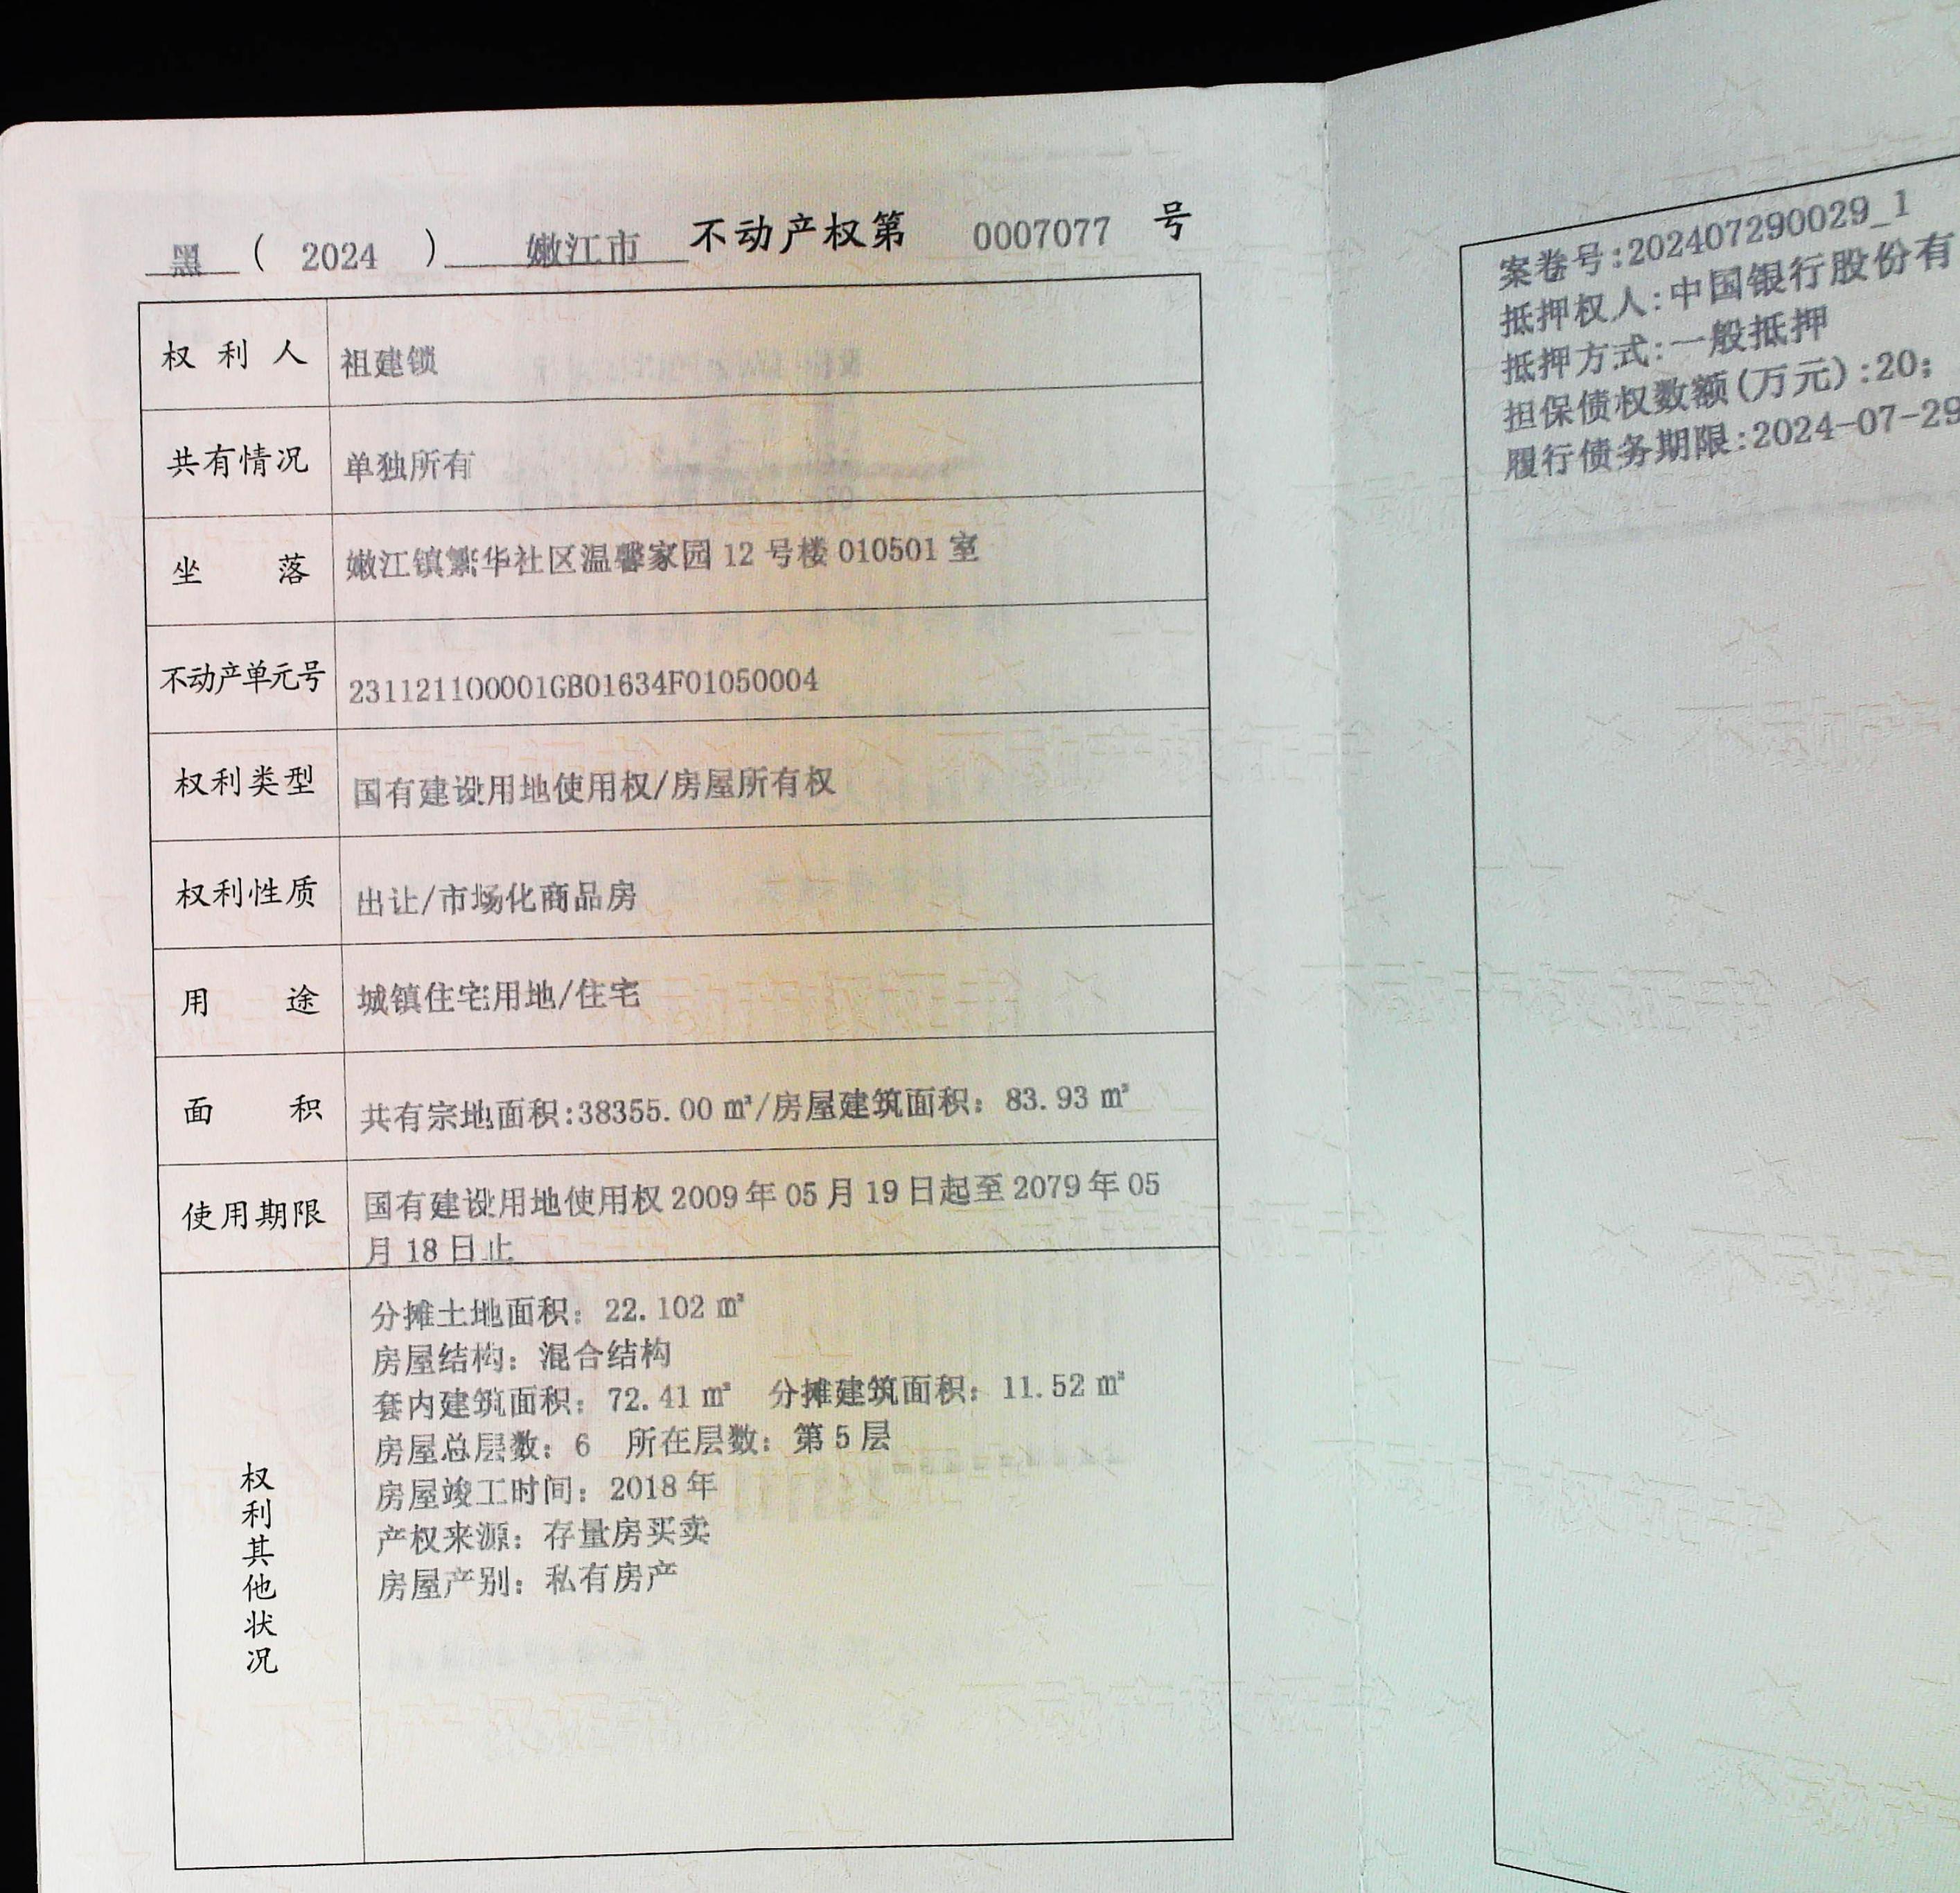 黑 ( 2024 ) 嫩江市 不动产权第 0007077 号
权利人 祖建锁
共有情况 单独所有
坐落 嫩江镇繁华社区温馨家园 12 号楼 010501 室
不动产单元号 231121100001GB01634F01050004
权利类型 国有建设用地使用权/房屋所有权
权利性质 出让/市场化商品房
用途 城镇住宅用地/住宅
面积 共有宗地面积:38355.00 ㎡/房屋建筑面积: 83.93 ㎡
使用期限 国有建设用地使用权 2009 年 05 月 19 日起至 2079 年 05
月 18 日止
权利其他状况
分摊土地面积: 22.102 ㎡
房屋结构: 混合结构
套内建筑面积: 72.41 ㎡ 分摊建筑面积: 11.52 ㎡
房屋总层数: 6 所在层数: 第 5 层
房屋竣工时间: 2018 年
产权来源: 存量房买卖
房屋产别: 私有房产
案卷号:202407290029_1
抵押权人:中国银行股份有
抵押方式:一般抵押
担保债权数额(万元):20;
履行债务期限:2024-07-29